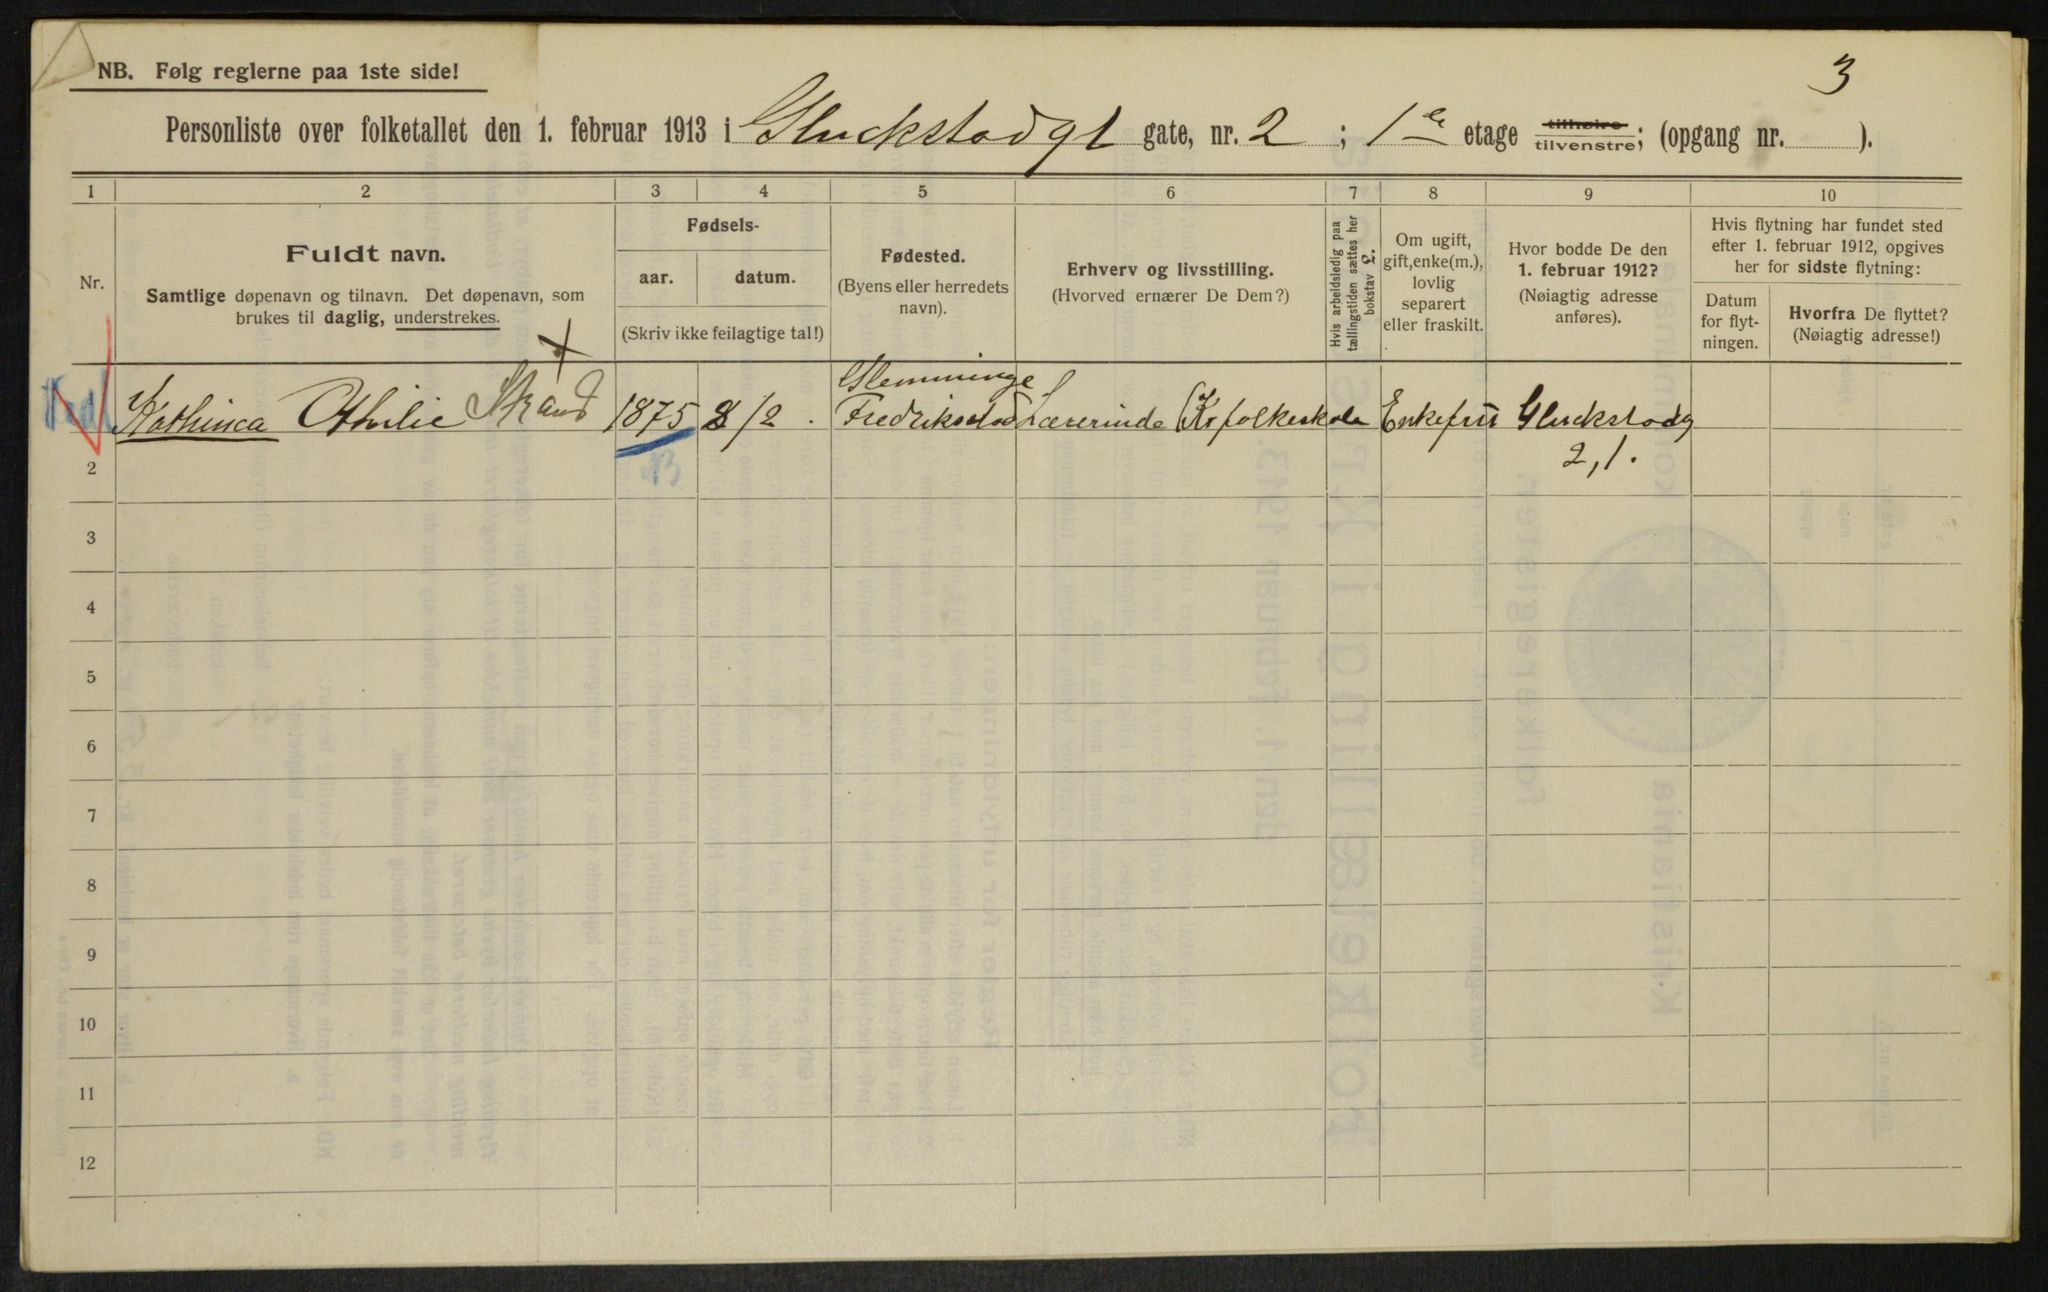 3
NB. Følg reglerne paa 1ste side!
Personliste over folketallet den 1. februar 1913 i Gluckstadgt gate, nr. 2 ; 1 etage tilhøire tilvenstre; (opgang nr. ).
1 2 3 4 5 6 7 8 9 10
Nr.
Fuldt navn.
Samtlige døpenavn og tilnavn. Det døpenavn, som
brukes til daglig, understrekes.
Fødsels-
aar. datum.
(Skriv ikke feilagtige tal!)
Fødested.
(Byens eller herredets
navn).
Erhverv og livsstilling.
(Hvorved ernærer De Dem?)
Hvis arbeidsledig paa
tællingstiden sættes her
bokstav L.
Om ugift,
gift, enke(m.),
lovlig
separert
eller fraskilt.
Hvor bodde De den
1. februar 1912?
(Nøiagtig adresse
anføres).
Hvis flytning har fundet sted
efter 1. februar 1912, opgives
her for sidste flytning:
Datum
for flyt-
ningen.
Hvorfra De flyttet?
(Nøiagtig adresse!)
Glemminge
Kathinca Othilie Strand 1875 8/2 . Fredriksstad Lærerinde Kr folkeskole Enkefru Gluckstadg
2,1.
2
3
4
5
6
7
8
9
10
11
12